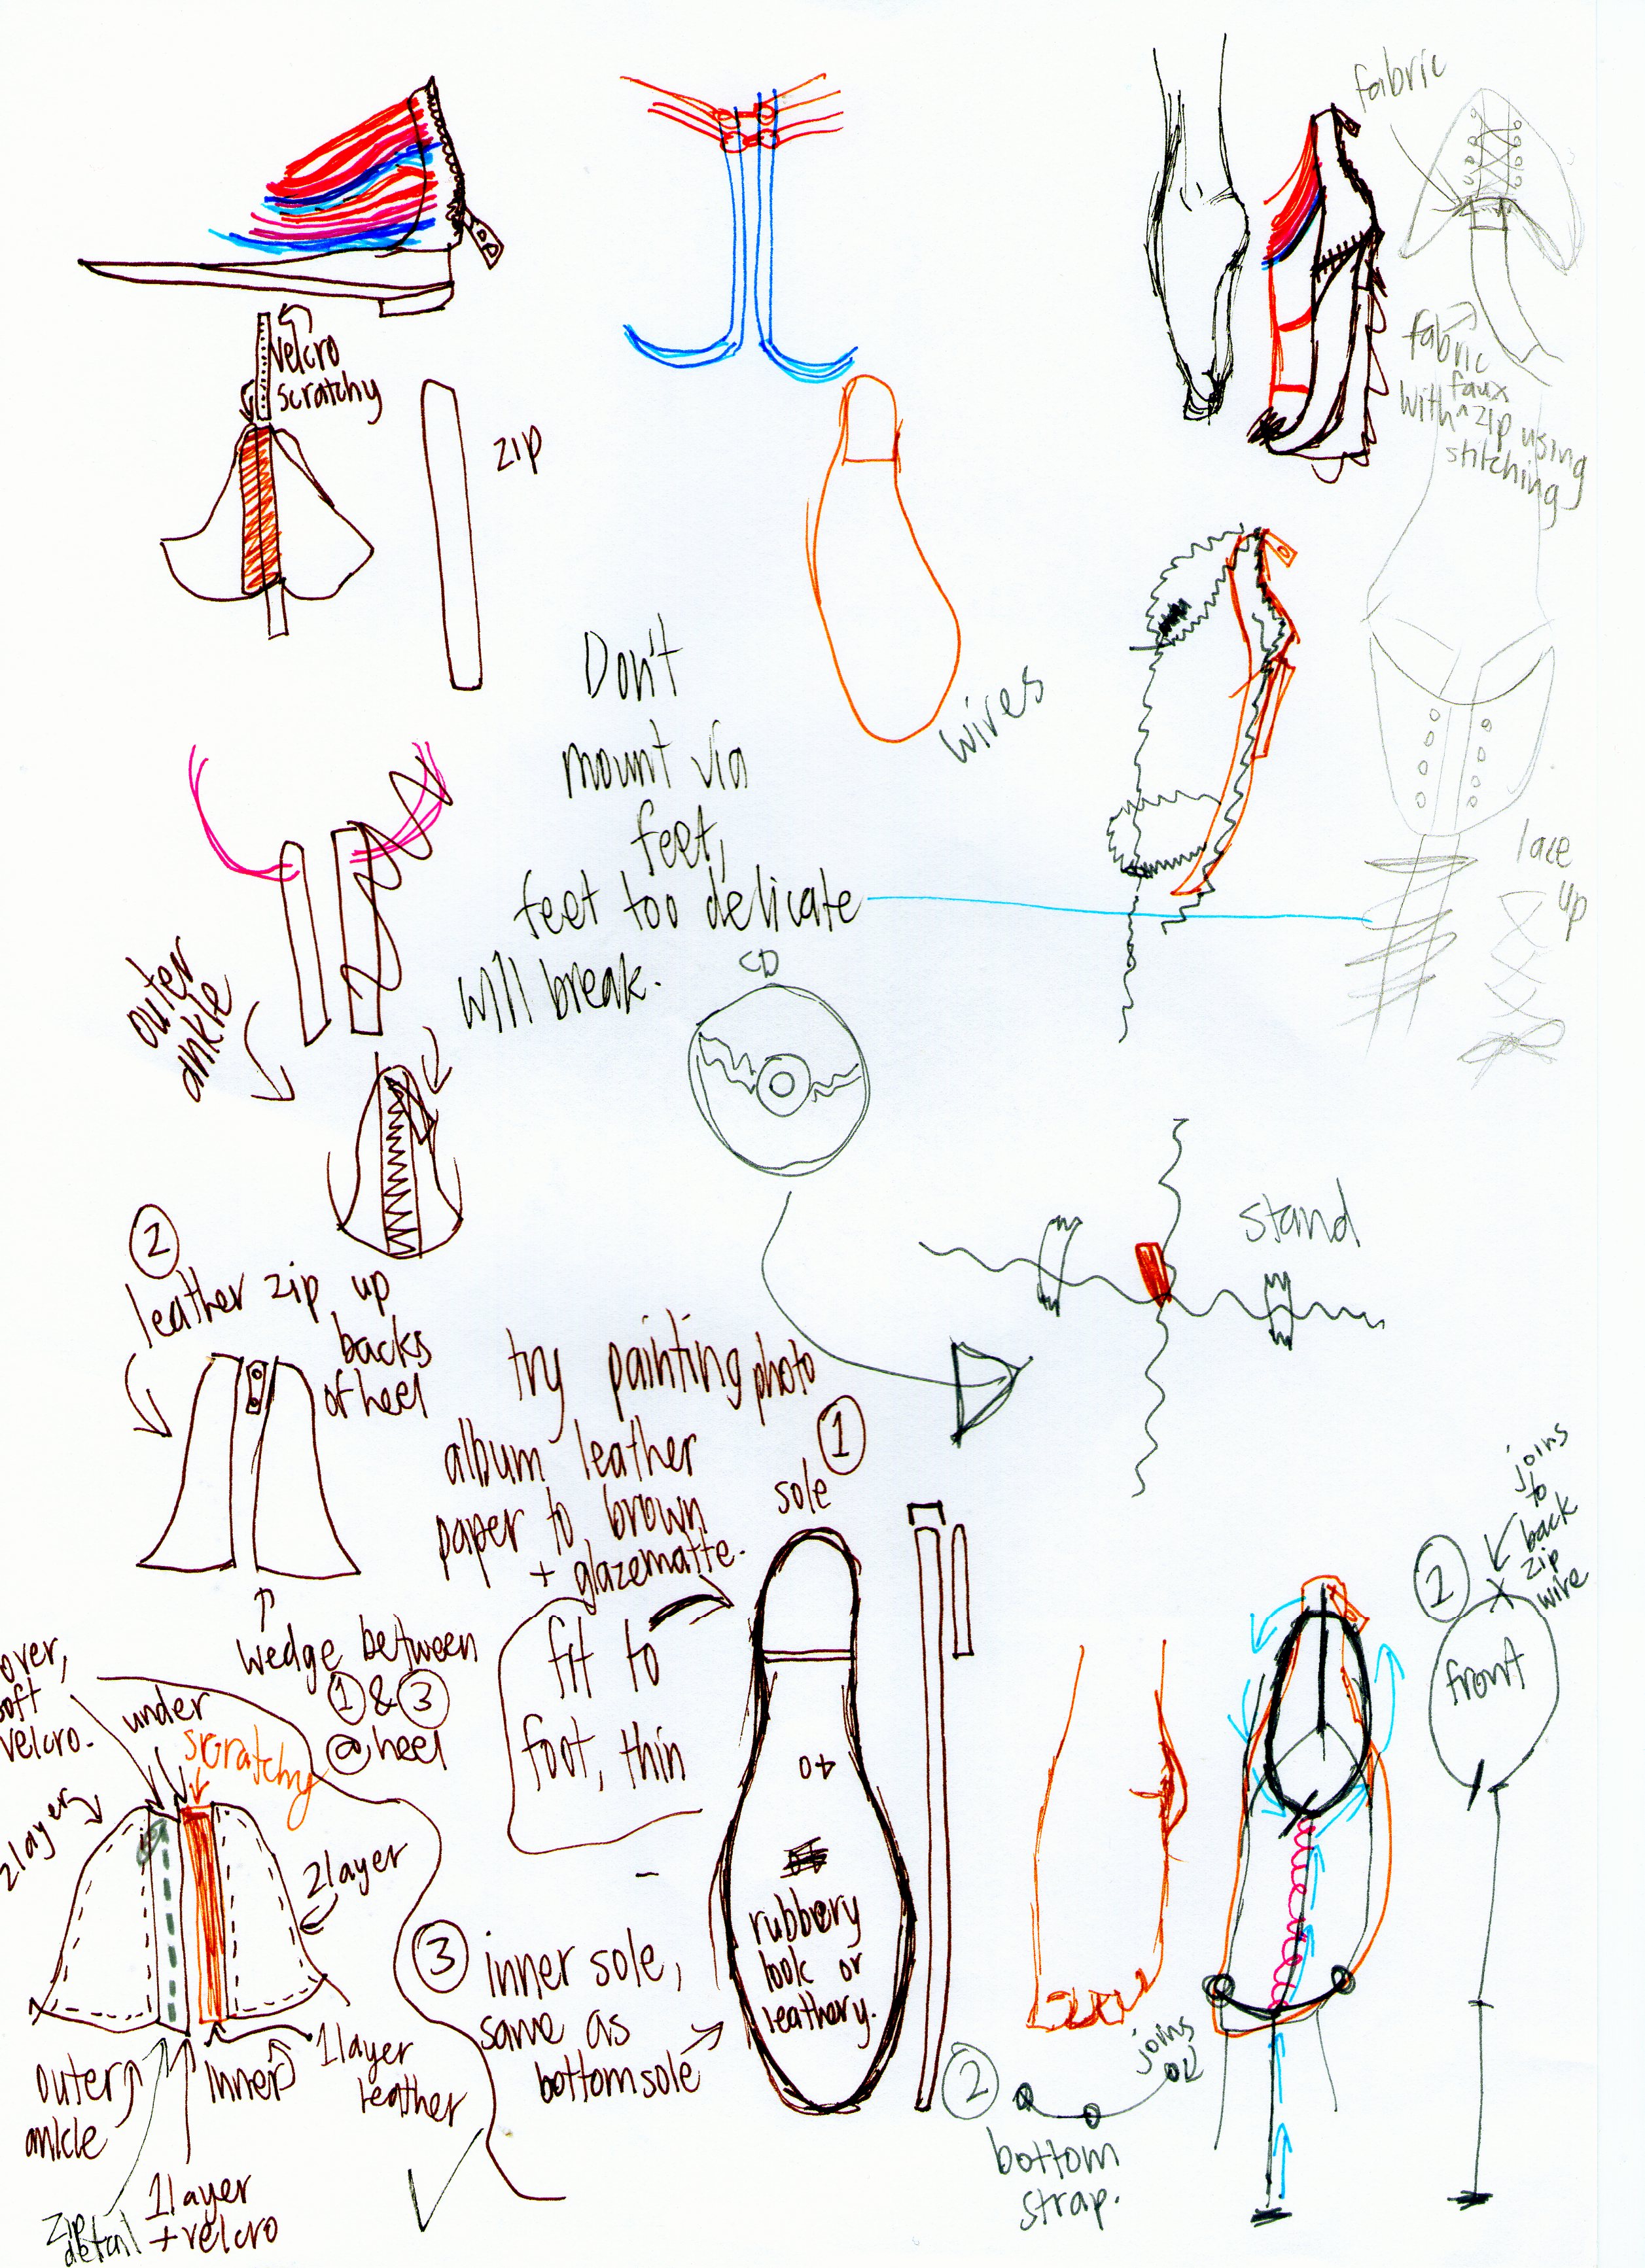 fabric
Velcro
scratchy
fabric
faux
with ^ zip using
stitching
zip
Don't
mount via
feet,
feet too delicate
will break.
wires
lace
up
outer
ankle
CD
stand
2
leather zip up
backs
of heel
try painting photo
album leather
paper to brown
+ glazematte.
sole 1
wedge between
1 & 3
@ heel
fit to
foot, thin
joins
to
back
zip
wire
2
front
over,
soft
velcro.
under
scratchy
2 layer
2 layer
40
rubbery
look or
leathery.
3 inner sole,
same as
bottom sole
outer
ankle
inner
1 layer
leather
zip
detail
1 layer
+ velcro
2
joins
bottom
strap.